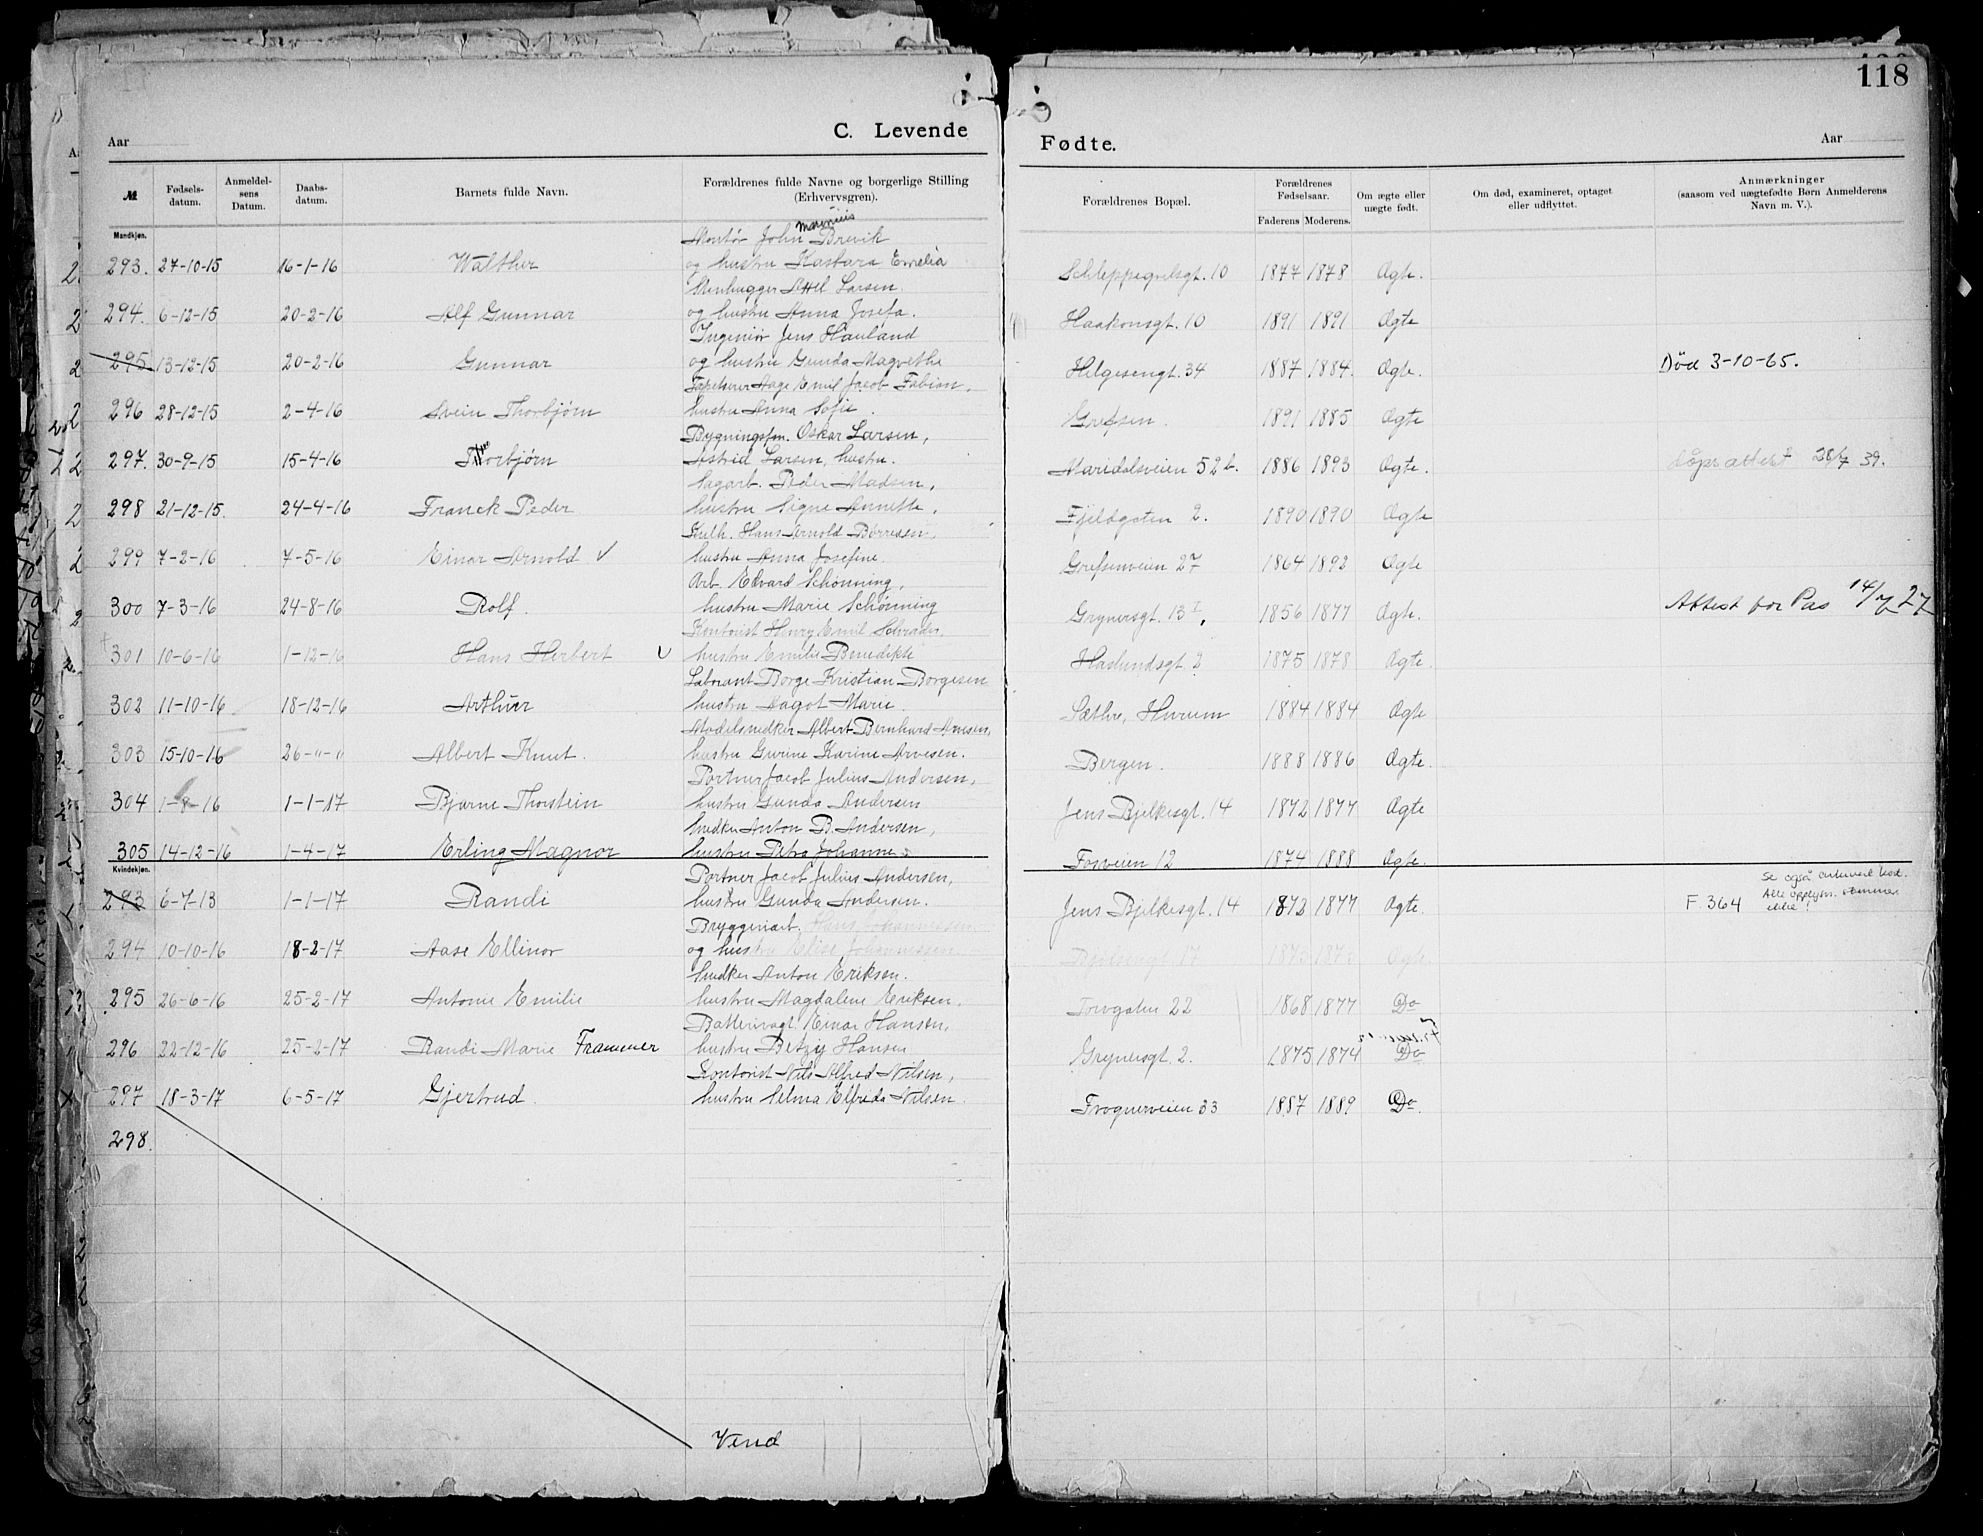 118
C. Levende Fødte.
Aar Aar
№ Fødselsdatum. Anmeldelsens Datum. Daabsdatum. Barnets fulde Navn. Forældrenes fulde Navne og borgerlige Stilling (Erhvervsgren). Forældrenes Bopæl. Forældrenes Fødselsaar. Faderens Moderens. Om ægte eller uægte født. Om død, examineret, optaget eller udflyttet. Anmærkninger (saasom ved uægtefødte Børn Anmelderens Navn m. V.).
Mandkjøn.
Montør John Brevik
293. 27-10-15 16-1-16 Walther og hustru Emelia Schleppegrelsgt. 10 1877 1878 Ægte.
Stenhugger Larsen.
294. 6-12-15 20-2-16 Alf Gunnar og hustru Anna Josefa. Haakonsgt. 10 1891 1891 Ægte
Ingeniør Jens Hauland
295 13-12-15 20-2-16 Gunnar og hustru Gunda Magrethe Helgesengt. 34 1887 1884. Ægte. Død 3-10-65.
Tapetserer Aage Emil Jacob Fabian,
296 28-12-15 2-4-16 Svein Thorbjørn hustru Anna Sofie. Grefsen. 1891 1885 Ægte
Bygningsfm. Oskar Larsen,
297. 30-9-15 15-4-16 Thorbjørn Astrid Larsen, hustru. Maridalsveien 52 b. 1886 1893 Ægte. dåpsattest 28/7 39.
Sagarb. Peder Madsen,
298 21-12-15 24-4-16 Franck Peder hustru Signe Annette, Fjeldgaten 2. 1890 1890 Ægte
Hans Arnold Børresen,
299 7-2-16 7-5-16 Einar Arnold ✓ hustru Anna Josefine. Grefsenveien 27 1864 1892 Ægte
Arb. Edvard Schønning,
300 7-3-16 24-8-16 Rolf. hustru Marie Schønning Grynersgt. 13 I, 1856 1877 Ægte. Attest for Pas 14/7 27
Kontorist Henry Emil Schrader,
301 10-6-16 1-12-16 Hans Herbert ✓ hustru Emilie Benedikte Haslundsgt. 2 1875 1878 Ægte.
Laborant Borge Kristian Borgesen
302 11-10-16 18-12-16 Arthur hustru Dagot Marie. Sæthre, Hurum 1884 1884 Ægte
Modelsnedker Albert Bernhard Arvesen,
303 15-10-16 26-"-" Albert Knut. hustru Gurine Karine Arvesen. Bergen. 1888 1886 Ægte.
Portner Jacob Julius Andersen,
304 1-8-16 1-1-17 Bjarne Thorstein hustru Gunda Andersen Jens Bjelkesgt. 14 1872 1877 Ægte
Snedker Anton B. Andersen,
305 14-12-16 1-4-17 Erling Magnor hustru Petra Johanne Fosveien 12 1874 1888 Ægte.
Kvindekjøn.
Portner Jacob Julius Andersen, Se også
293 6-7-13 1-1-17 Randi hustru Gunda Andersen. Jens Bjelkesgt. 14 1872 1877 Ægte. F. 364 Alle opplysn. stemmer ikke!
Bryggeriarb. Hans Johannessen
294 10-10-16 18-2-17 Aase Ellinor og hustru Elise Johannessen 17 1873 1873 Ægte
Snedker Anton Eriksen.
295 26-6-16 25-2-17 Antonie Emilie hustru Magdalene Eriksen. Torvgaten 22 1868 1877 Do
Batterivagt. Einar Hansen,
296 22-12-16 25-2-17 Randi Marie Frammer hustru Betzy Hansen Grynersgt. 2. 1875 1874 Do
Kontorist Nils Alfred Nilsen,
297 18-3-17 6-5-17 Gjertrud. hustru Selma Elfrida Nilsen. Frognerveien 33 1887 1889 Do.
298.
Vend